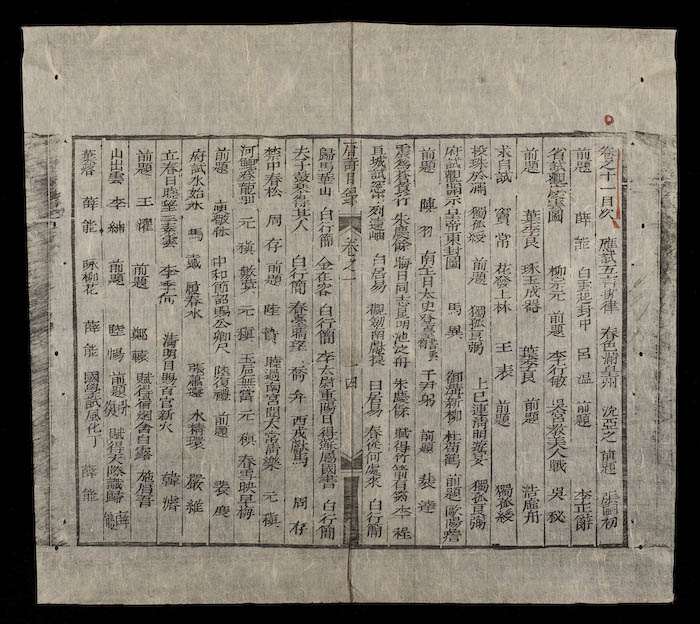 卷之十一目次 應試五言排律 春色滿皇州 沈亞之 前題 張嗣初
前題 薛能 白玉起封中 呂溫 前題 李正辭
省試觀慶雲圖 柳宗元 前題 李行敏 吳宮教美人戰 吳秘
前題 葉季良 琢玉成器 葉季良 前題 浩虛舟
求自試 竇常 花發上林 王表 獨孤綬
投珠於淵 獨孤綬 前題 獨孤良弼 上巳連清明遊宴 獨孤良弼
府試觀開元皇帝東封圖 馬異 御溝新柳 杜荀鶴 前題 歐陽詹
前題 陳羽 南至日太史登臺書雲 于尹躬 前題 裴逵
震為蒼筤竹 朱慶餘 晦日同志昆明池泛舟 朱慶餘 賦得竹箭有筠 李程
宣城試窓中列遠岫 白居易 觀 白居易 春從何處來 白行簡
唐詩目錄 卷之一 四
歸馬華山 白行簡 金在鎔 白行簡 李太尉重陽日得蘇屬國書 白行簡
夫子鼓琴得其人 白行簡 春臺晴望 喬弁 西戎獻馬 周存
禁中春松 周存 前題 陸贄 曉過南宮聞太常清樂 元稹
河鯉登龍門 元稹 數蓂 元稹 玉卮無當 元稹 春雪映早梅
前題 庾敬休 中和節詔賜公卿尺 陸復禮 前題 裴度
府試水始冰 馬戴 履春冰 張蕭遠 水精環 嚴維
立春日曉望三素雲 李季何 清明日賜百官新火 韓濬
前題 王濯 前題 鄭轅 賦得 白露 施肩吾
山出雲 李紳 前題 陸暢 前題 張復 賦得天際識歸 薛能
薛能 詠柳花 薛能 國學試風化下 薛能